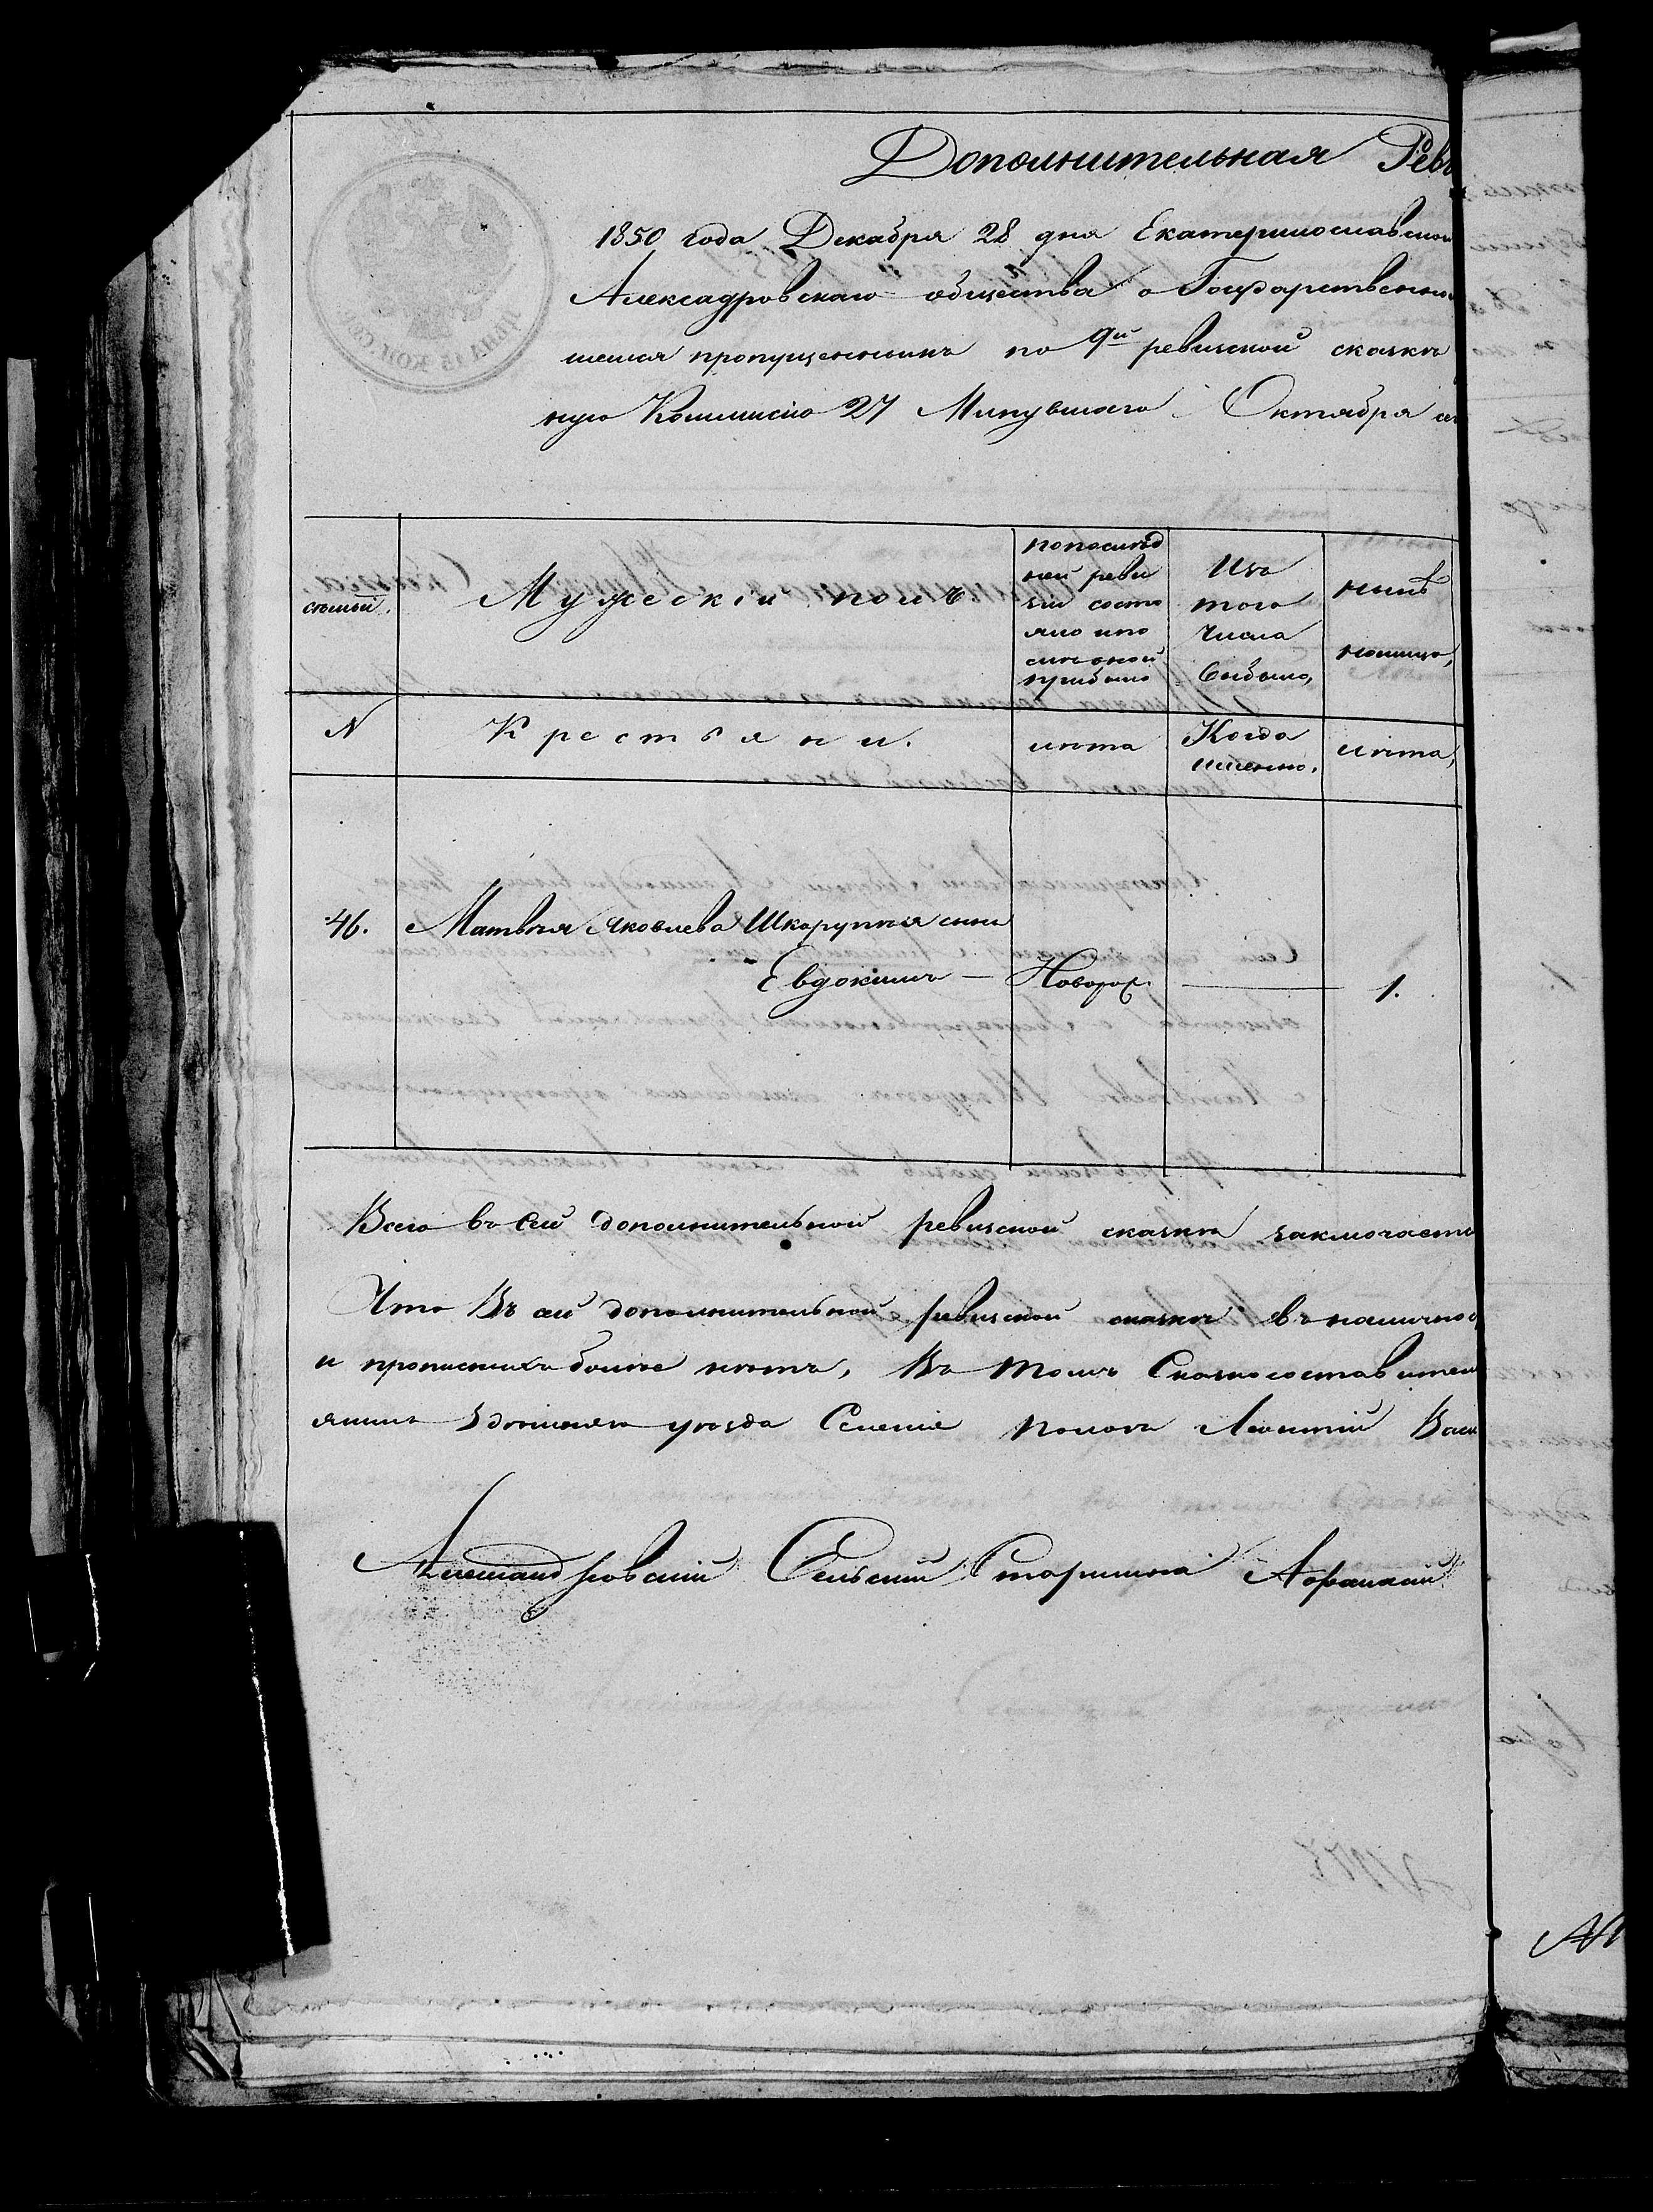 Дополнительная Реви
1850 года Декабря 28 дня Екатеринославской
Алексадровскаго общества о Государственны
шемся пропущенныхъ по 9й ревизской сказкѣ
ную Коммисію 27 Минувшаго Октября
семьи.
Мужескій полъ
по послѣд
ней реви
зіи состо
яло и по
слѣ оной
прибыло
Изъ
того
числа
выбыло,
нынѣ
налицо,
N
Крестьяни.
лѣта
Когда
именно.
лѣта,
46. Матвѣя Яковлева Шкарупы сынъ
Евдокимъ — Новорож. — 1.
Всего въ сей дополнительной ревизской сказкѣ заключается
Что въ сей дополнительной ревизской сказкѣ въ налично
и прописныхъ болѣе нѣтъ, Въ томъ Сказкосоставител
уѣзда Селенія Пологъ Леонтій Васи
Александровскій Сельскій Старшина